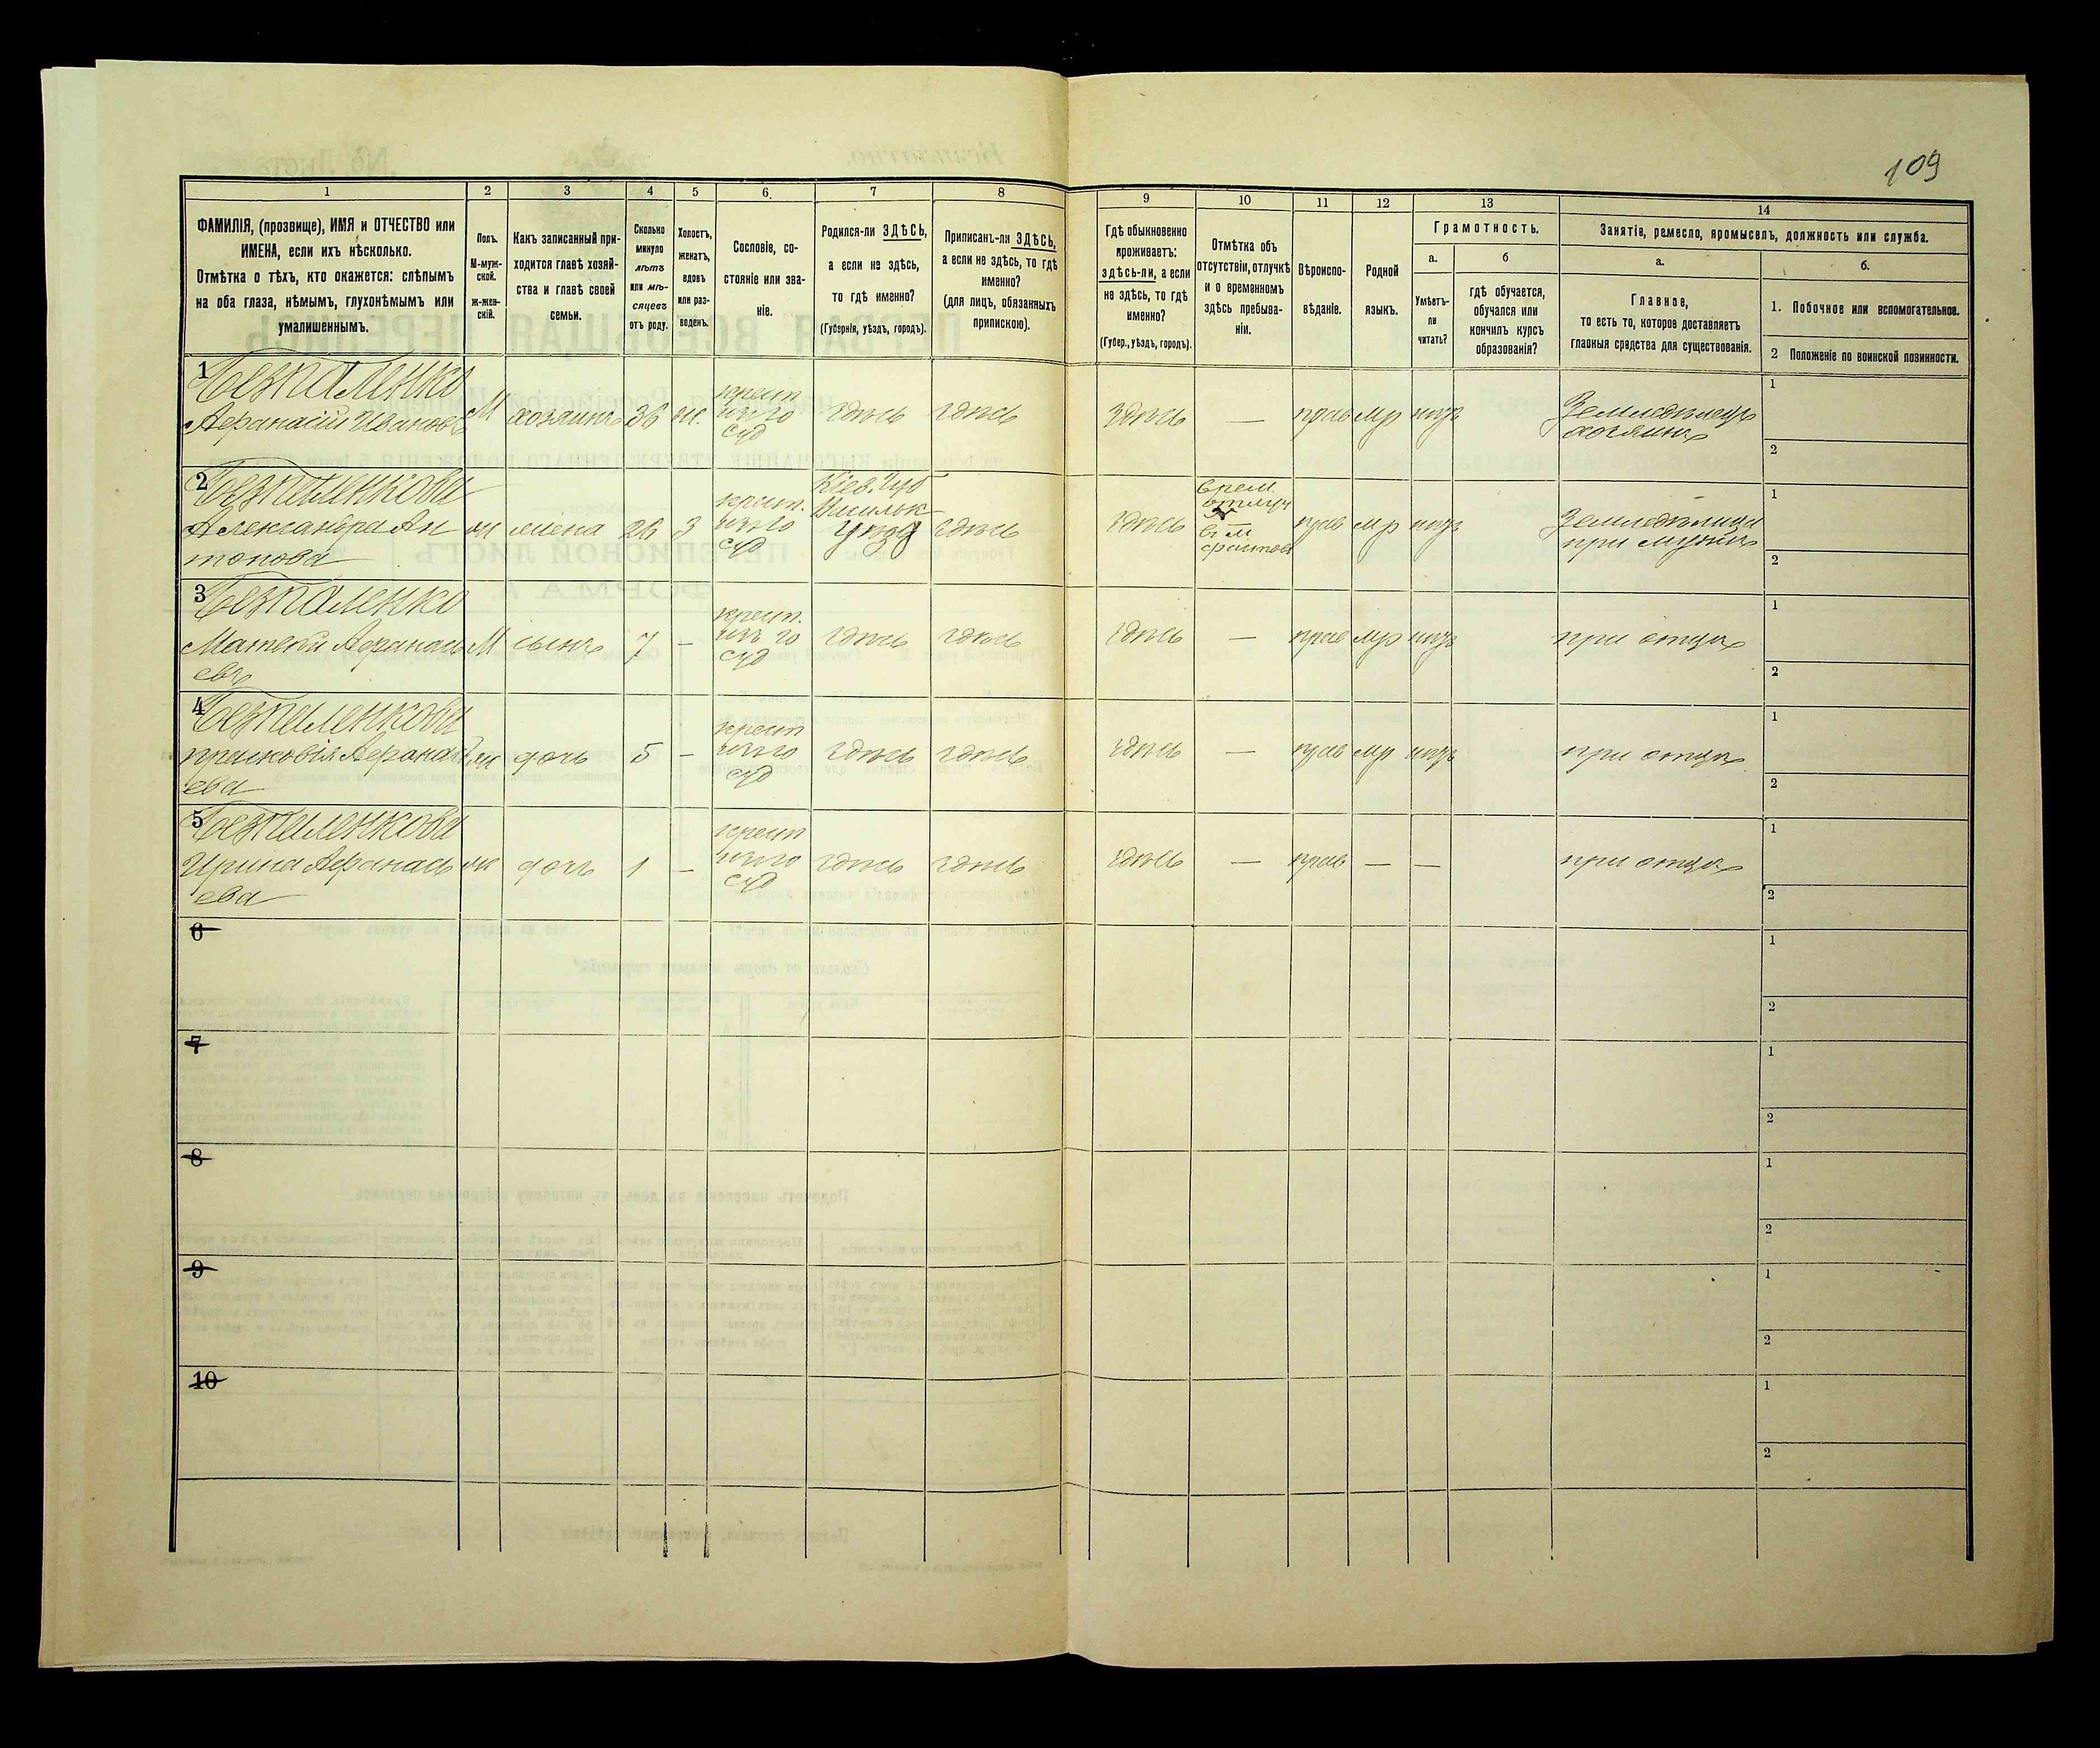 109
1 2 3 4 5 6. 7 8 9 10 11 12 13 14
ФАМИЛІЯ, (прозвище), ИМЯ и ОТЧЕСТВО или
ИМЕНА, если ихъ нѣсколько.
Отмѣтка о тѣхъ, кто окажется: слѣпымъ
на оба глаза, нѣмымъ, глухонѣмымъ или
умалишеннымъ.
Полъ.
М-муж-
ской.
ж-жен-
скій.
Какъ записанный при-
ходится главѣ хозяй-
ства и главѣ своей
семьи.
Сколько
минуло
лѣтъ
или мѣ-
сяцевъ
отъ роду.
Холостъ,
женатъ,
вдовъ
или раз-
веденъ.
Сословіе, со-
стояніе или зва-
ніе.
Родился-ли ЗДѢСЬ,
а если не здѣсь,
то гдѣ именно?
(Губернія, уѣздъ, городъ).
Приписанъ-ли ЗДѢСЬ,
а если не здѣсь, то гдѣ
именно?
(для лицъ, обязанныхъ
припискою).
Гдѣ обыкновенно
проживаетъ:
здѣсь-ли, а если
не здѣсь, то гдѣ
именно?
(Губер., уѣздъ, городъ).
Отмѣтка объ
отсутствіи, отлучкѣ
и о временномъ
здѣсь пребыва-
ніи.
Вѣроиспо-
вѣданіе.
Родной
языкъ.
Грамотность.
а.
Умѣетъ-
ли
читать?
б
гдѣ обучается,
обучался или
кончилъ курсъ
образованія?
Занятіе, ремесло, промыселъ, должность или служба.
а.
Главное,
то есть то, которое доставляетъ
главныя средства для существованія.
б.
1. Побочное или вспомогательное.
2 Положеніе по воинской повинности.
1
Безпаленко
Афанасій Ивановъ
М
хозяинъ
36
ж.
крест
изъ го
суд
здѣсь
здѣсь
здѣсь
—
прав
мр
нѣтъ
Земледѣлецъ
хозяинъ
1
2
2
Безпаленкова
Александра Ан
тонова
ж
жена
26
З
крест.
изъ го
суд
Кіев. Губ
Васильк
Уѣзд
здѣсь
здѣсь
врем.
отлуч
в м
прав
мр
нѣтъ
Земледѣлица
при мужѣ
1
2
3
Безпаленко
Матвѣй Афанась
евъ
М
сынъ
7
–
крест.
изъ го
суд
здѣсь
здѣсь
здѣсь
—
прав
мр
нѣтъ
при отцѣ
1
2
4
Безпаленкова
Прасковія Афанась
ева
ж
дочь
5
–
крест
изъ го
суд
здѣсь
здѣсь
здѣсь
—
прав
мр
нѣтъ
при отцѣ
1
2
5
Безпаленкова
Ирина Афанась
ева
ж
дочь
1
–
крест
изъ го
суд
здѣсь
здѣсь
здѣсь
—
прав
—
—
при отцѣ
1
2
6
1
2
7
1
2
8
1
2
9
1
2
10
1
2